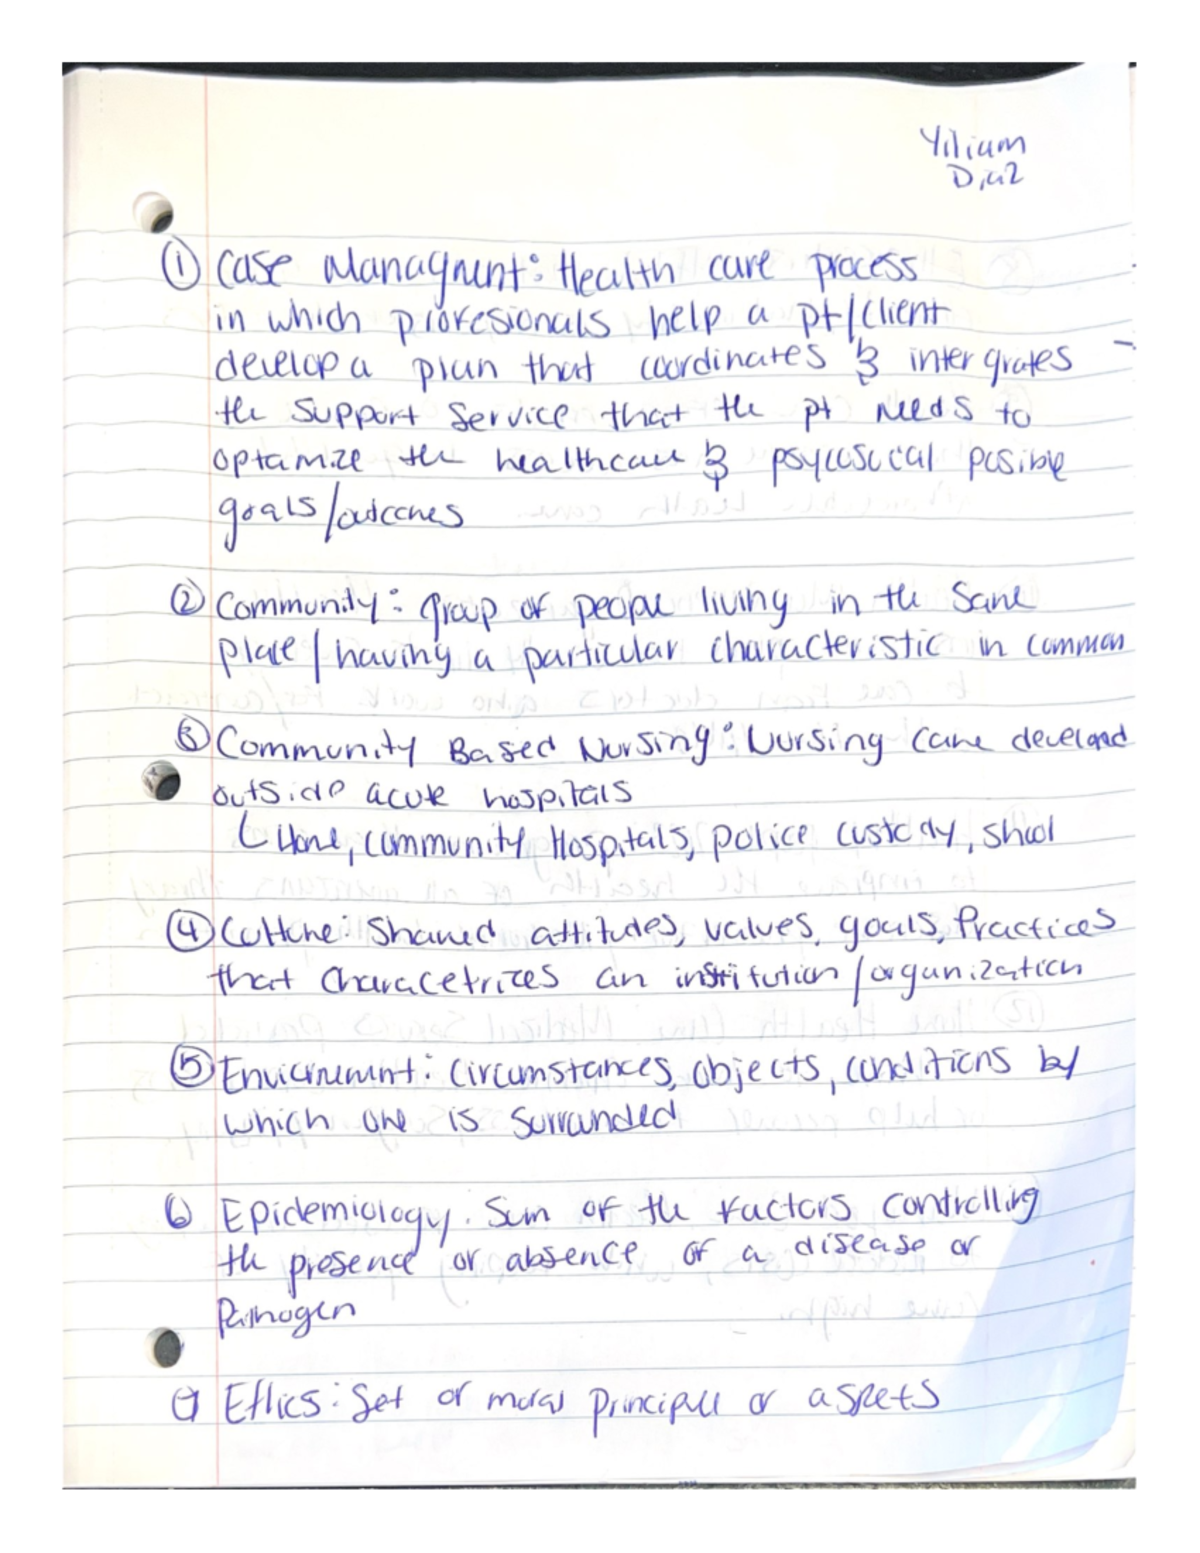 Yilium
Diaz
① Case Managment: Health care process
in which profesionals help a pt/client
develop a plan that coordinates & intergrates
the support service that the pt needs to
optamize the healthcare & psycosocal posible
goals/outcomes
② Community: group of people living in the same
place/having a particular characteristic in common
③ Community Based Nursing: Nursing care develope
outside acute hospitals
Home, Community Hospitals, police custody, shool
④ Culture: Shared attitudes, values, goals, Practices
that Characetrizes an institution/organization
⑤ Enviornemnt: Circumstances, objects, conditions by
which one is surrounded
6 Epidemiology. Sum of the factors controlling
the presence or absence of a disease or
Pathogen
7 Ethics: Set of moral principle or aspets